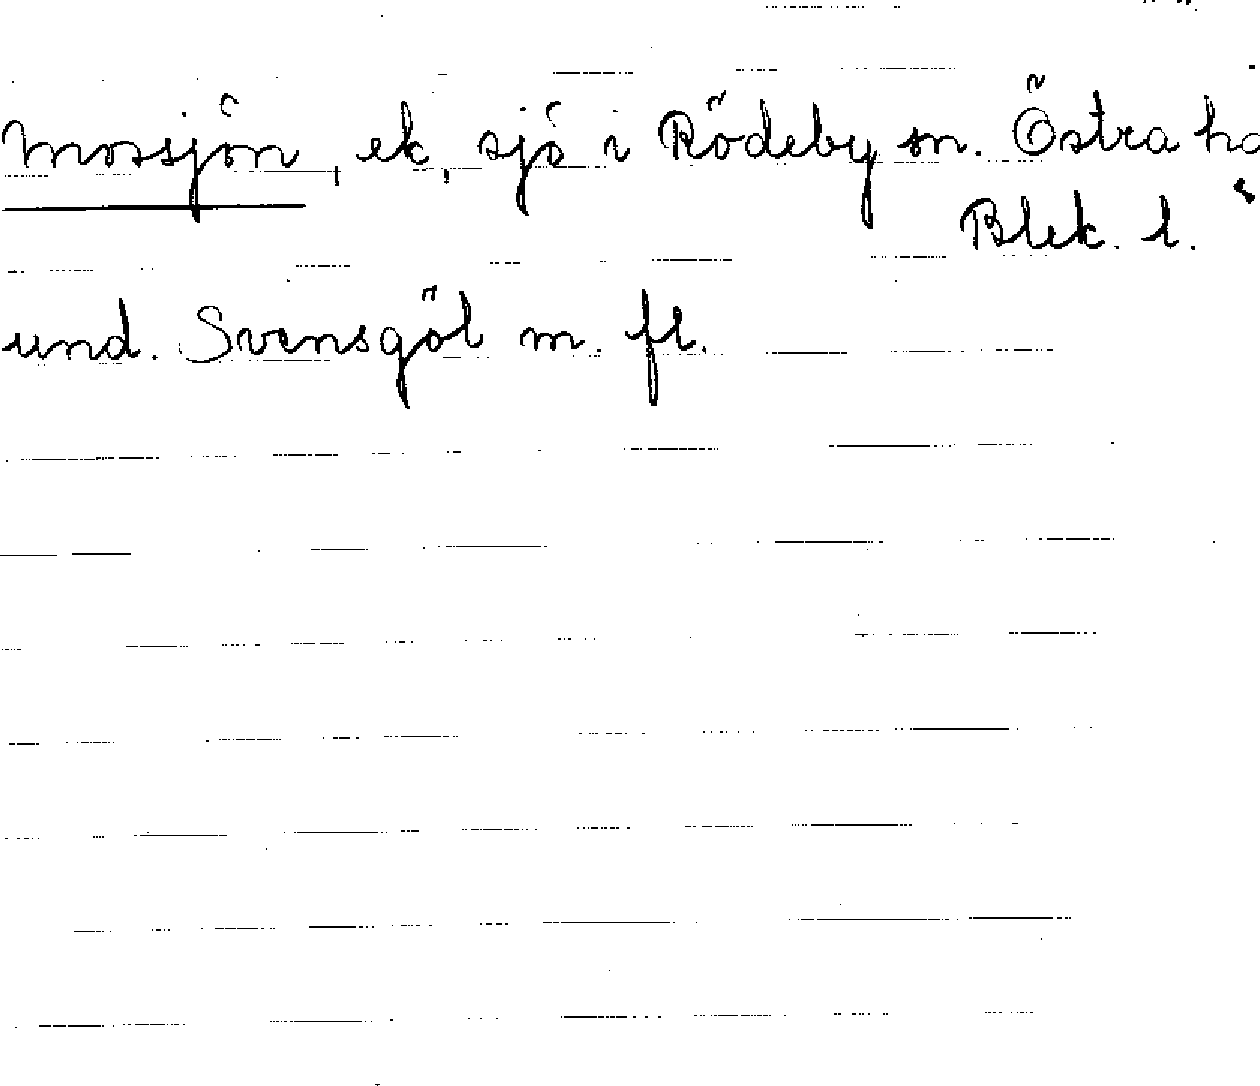 Mossjön, ek, sjö i Rödeby sn. Östra
Blek. l.
und. Svensgöl m. fl.